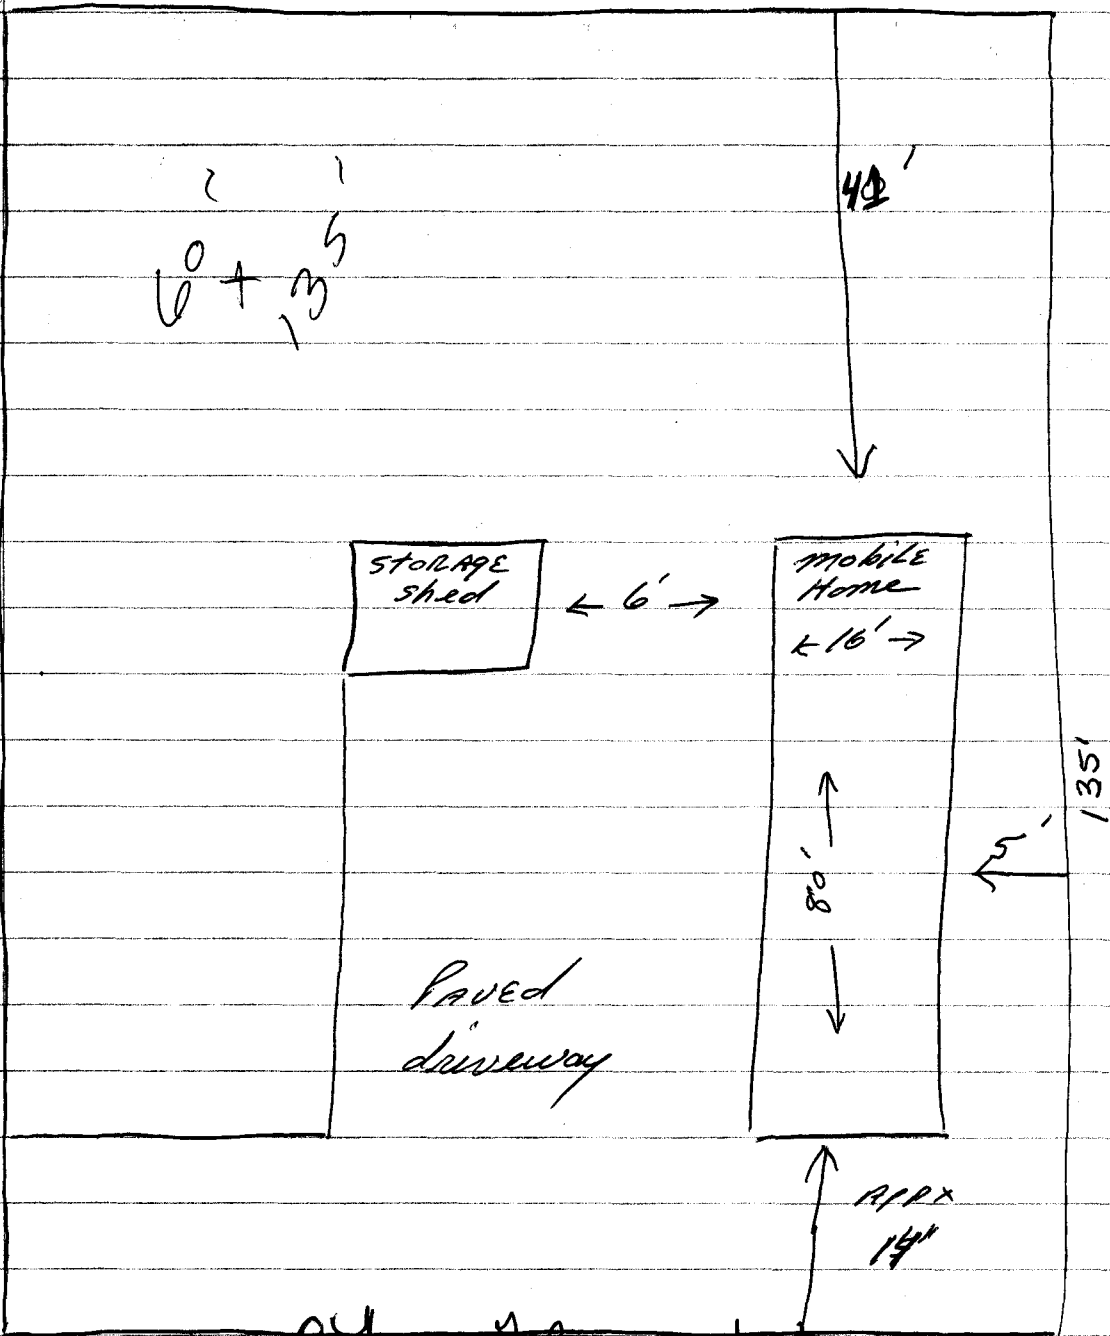 60 + 135
storage
shed
← 6' →
mobile
Home
← 16' →
80'
135'
5'
Paved
driveway
Appx